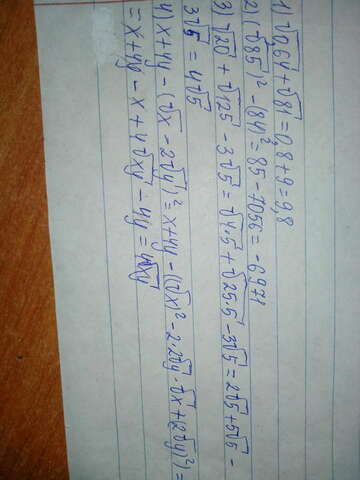 1) √0,64 + √81 = 0,8 + 9 = 9,8
2) (√85)² - (84)² = 85 - 7056 = -6971
3) √20 + √125 - 3√5 = √4·5 + √25·5 - 3√5 = 2√5 + 5√5 -
3√5 = 4√5
4) x + 4y - (√x - 2√y)² = x + 4y - ((√x)² - 2·2√y·√x + (2√y)²) =
= x + 4y - x + 4√xy - 4y = 4√xy